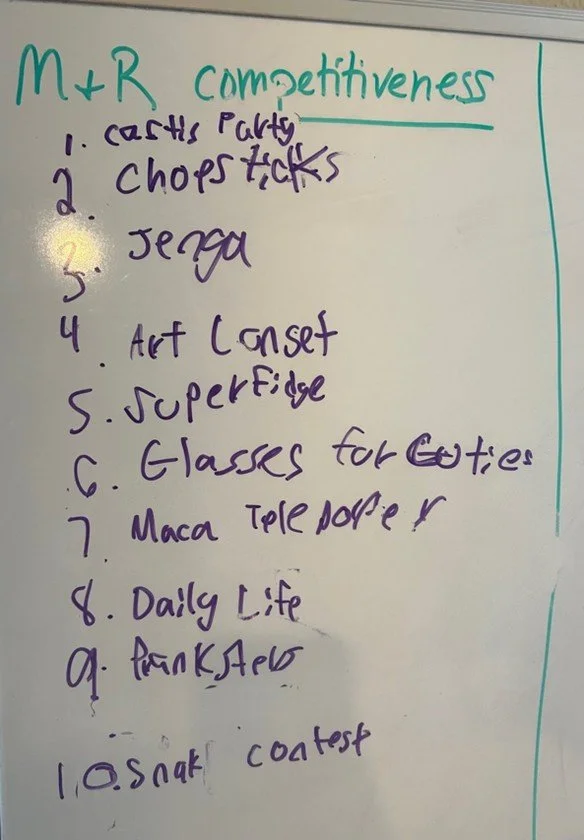 M+R competitiveness
1. castls Party
2. Chopsticks
3. Jenga
4. Art Conset
5. Superfidge
6. Glasses for Cuties
7. Maca Teleporter
8. Daily Life
9.
10. Snak contest